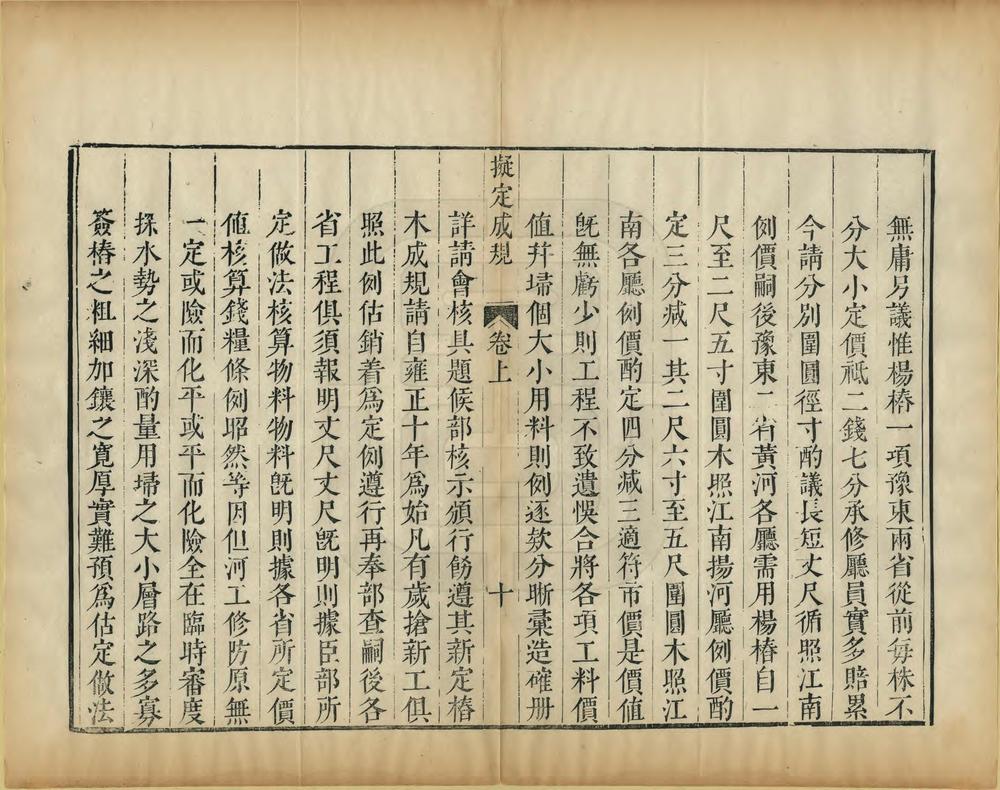 無庸另議惟楊樁一項豫東兩省從前每株不
分大小定價祗二錢七分承修廳員實多賠累
今請分別圍圓徑寸酌議長短丈尺循照江南
例價嗣後豫東二省黃河各廳需用楊樁自一
尺至二尺五寸圍圓木照江南揚河廳例價酌
定三分減一其二尺六寸至五尺圍圓木照江
南各廳例價酌定四分減三適符市價是價值
既無虧少則工程不致遺悞合將各項工料價
值并埽個大小用料則例逐欵分晰彚造確册
擬定成規 卷上 十
詳請會核具題候部核示頒行飭遵其新定樁
木成規請自雍正十年為始凡有歲搶新工俱
照此例估銷着為定例遵行再奉部查嗣後各
省工程俱須報明丈尺丈尺既明則據臣部所
定做法核算物料物料既明則據各省所定價
值核算錢糧條例昭然等因但河工修防原無
一定或險而化平或平而化險全在臨時審度
探水勢之淺深酌量用埽之大小層路之多寡
簽樁之粗細加鑲之寬厚實難預為估定做法